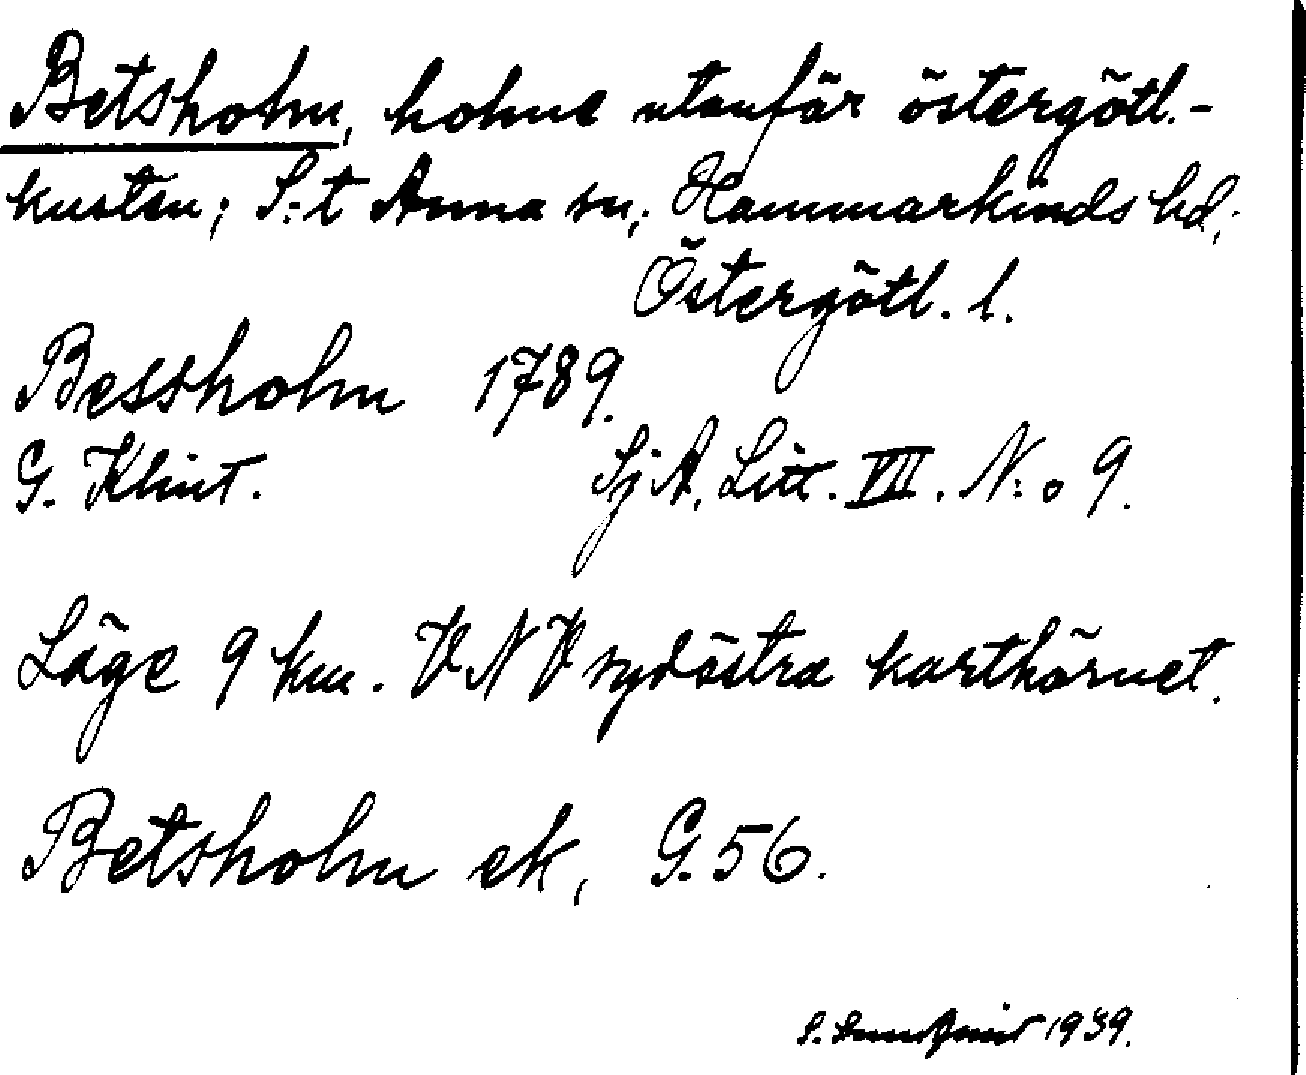 Betsholm, holme utanför östergötl.-
kusten; S:t Anna sn, Hammarkinds hd,
Östergötl. l.
Bessholm 1789.
G. Klint. Sj A. Litt. VII. N:o 9.
Läge 9 km. VNV sydöstra karthörnet.
Betsholm ek, G. 56.
S. 1939.